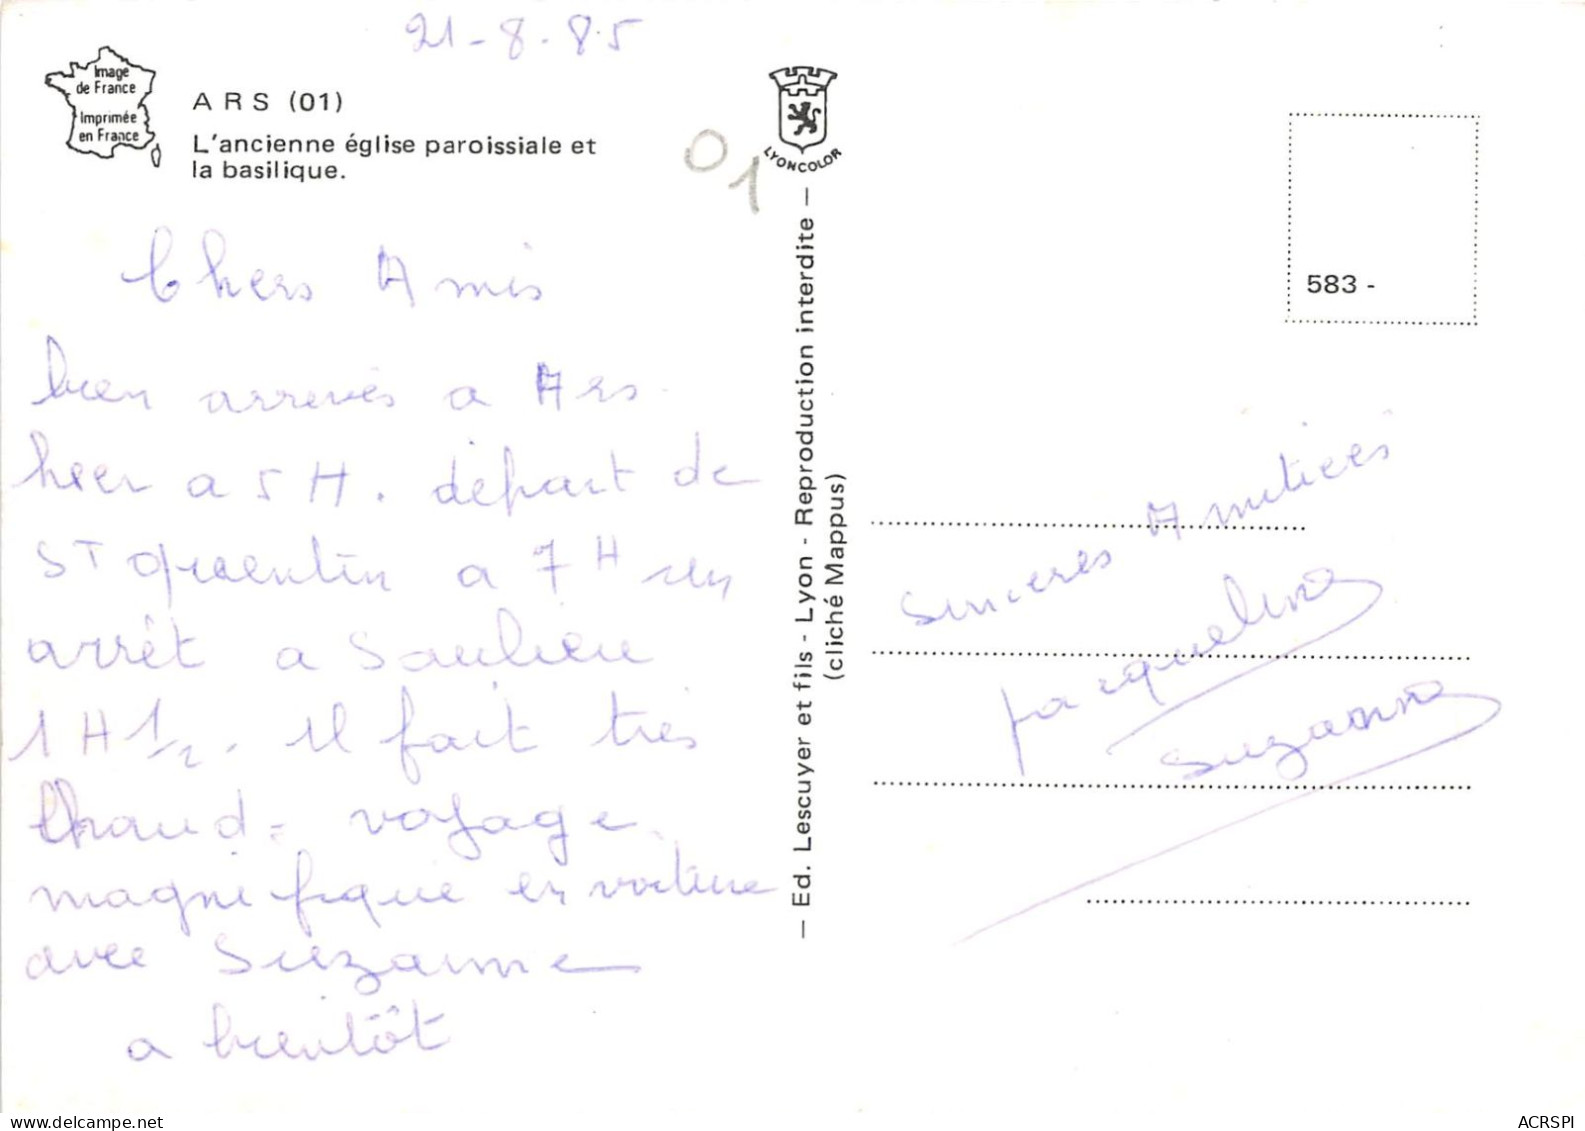 21-8-85
Image
de France
Imprimée
en France
ARS (01)
L'ancienne église paroissiale et
la basilique.
01
LYONCOLOR
Chers Amis
bien arrivés a Ars
hier a 5 H. départ de
ST Quentin a 7H un
arrêt a Saulieu
1 H 1/2. Il fait très
Chaud - voyage
magnifique en voiture
avec Suzanne
a bientôt
— Ed. Lescuyer et fils - Lyon - Reproduction interdite —
(cliché Mappus)
583 -
Sincères Amitiées
Jacqueline
Suzanne
ACRSPI